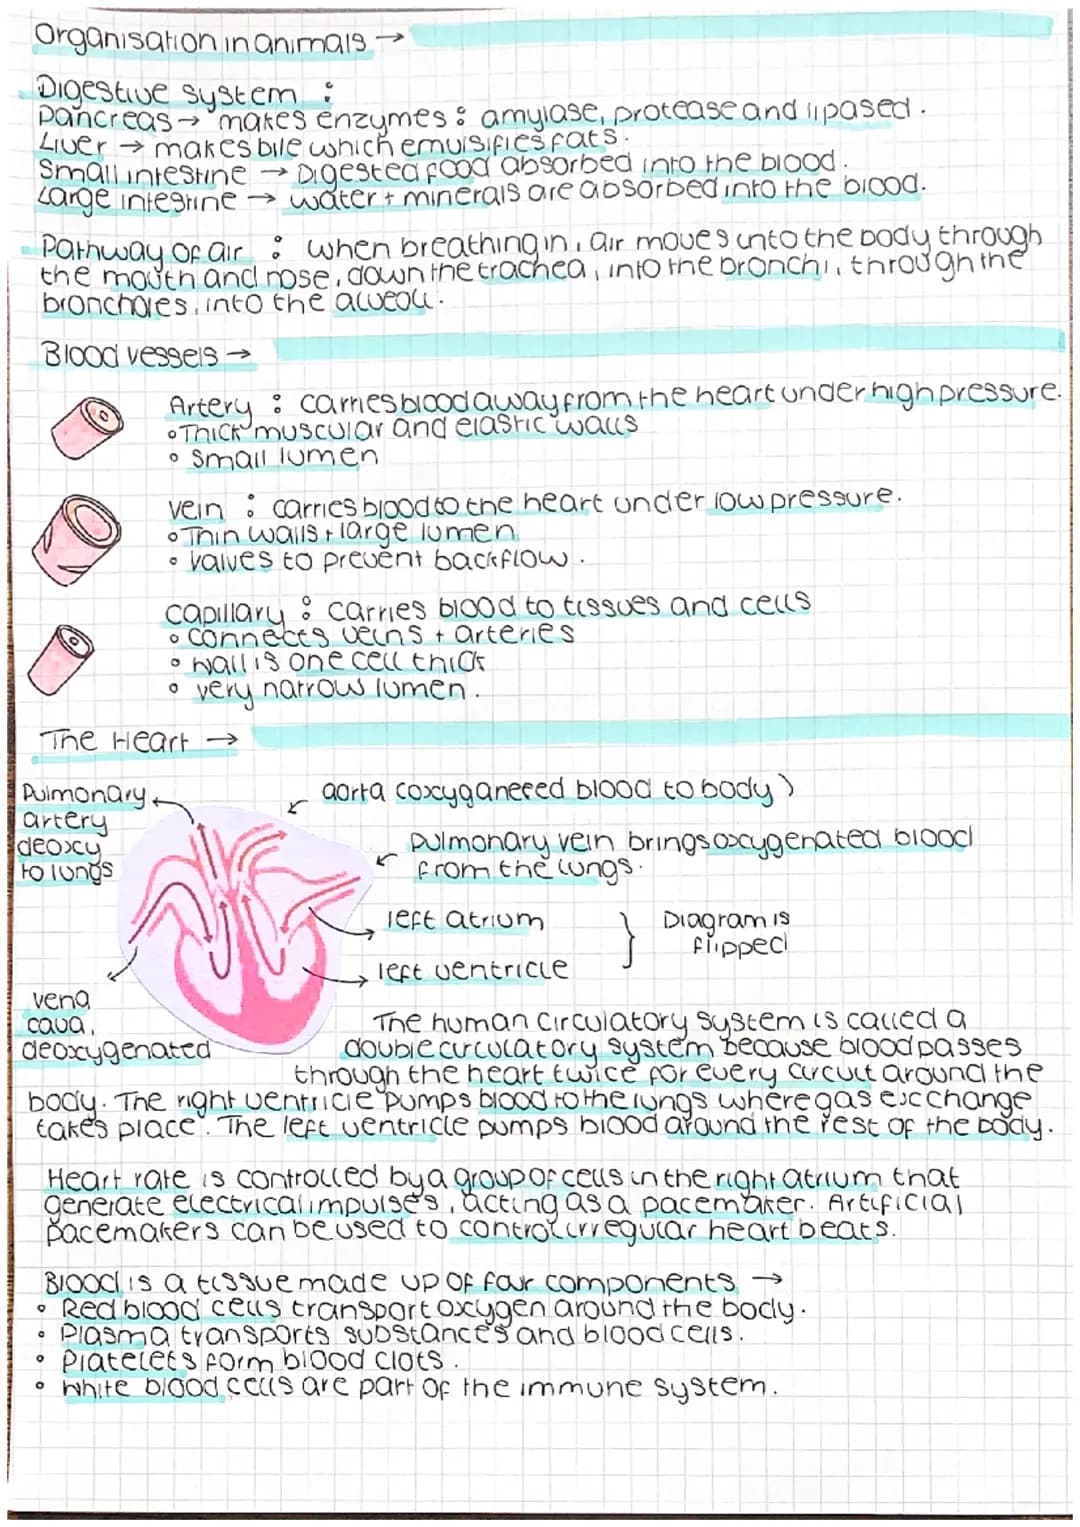 Organisation in animals →
Digestive system :
Pancreas → makes enzymes : amylase, protease and lipased.
Liver → makes bile which emulsifies fats.
Small intestine → Digested food absorbed into the blood.
Large intestine → water + minerals are absorbed into the blood.
Pathway of air : when breathing in, air moves into the body through
the mouth and nose, down the trachea, into the bronchi, through the
bronchioles, into the alveoli.
Blood vessels →
Artery : carries blood away from the heart under high pressure.
• Thick muscular and elastic walls
• small lumen
vein : carries blood to the heart under low pressure.
• Thin walls + large lumen
• valves to prevent backflow.
capillary : carries blood to tissues and cells
• connects veins + arteries
• wall is one cell thick
• very narrow lumen.
The Heart →
Pulmonary
artery
deoxy
to lungs
aorta (oxyganered blood to body)
pulmonary vein brings oxygenated blood
from the lungs.
left atrium
left ventricle
} Diagram is
flipped
vena
cava,
deoxygenated
The human circulatory system is called a
double circulatory system because blood passes
through the heart twice for every circuit around the
body. The right ventricle pumps blood to the lungs where gas exchange
takes place. The left ventricle pumps blood around the rest of the body.
Heart rate is controlled by a group of cells in the right atrium that
generate electrical impulses, acting as a pacemaker. Artificial
pacemakers can be used to control irregular heart beats.
Blood is a tissue made up of four components →
• Red blood cells transport oxygen around the body.
• Plasma transports substances and blood cells.
• Platelets form blood clots.
• white blood cells are part of the immune system.